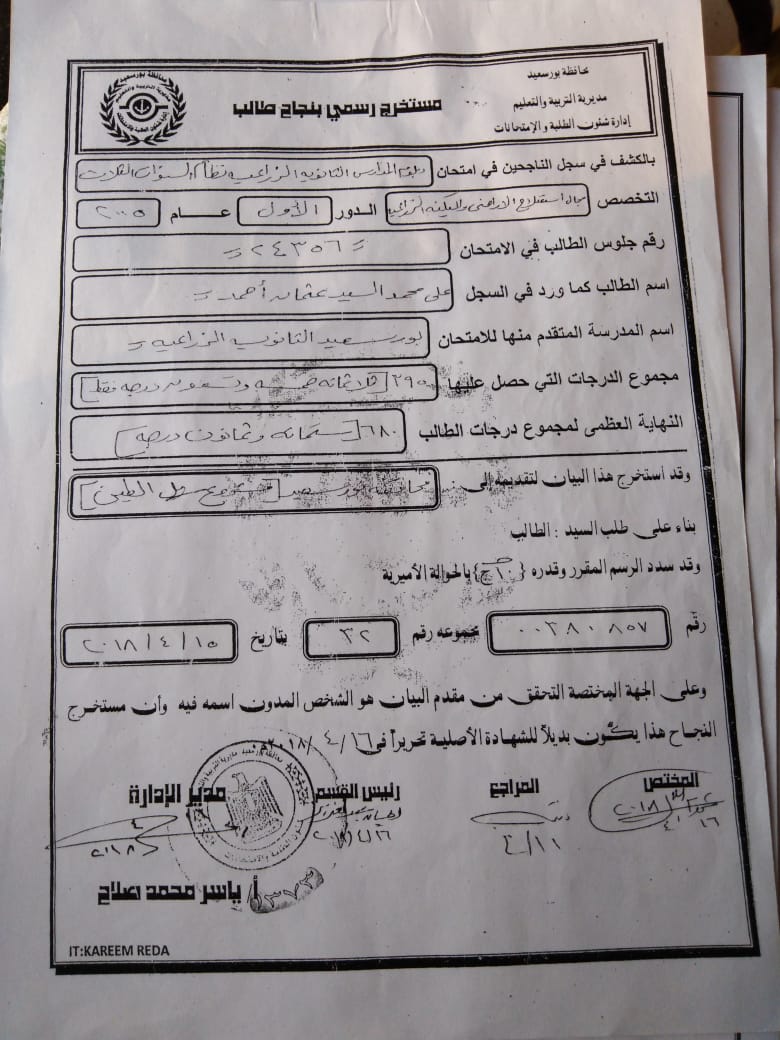 محافظة بورسعيد
مديرية التربية والتعليم
إدارة شئون الطلبة والإمتحانات
مستخرج رسمي بنجاح طالب
بالكشف في سجل الناجحين في امتحان دبلوم المدارس الثانوية الزراعية نظام السنوات الثلاث
التخصص مجال استصلاح الاراضى والميكنة الزراعية الدور الأول عام ٢٠٠٥
رقم جلوس الطالب في الامتحان ٢٤٣٥٦
اسم الطالب كما ورد في السجل على محمد السيد عثمان أحمد
اسم المدرسة المتقدم منها للامتحان بورسعيد الثانوية الزراعية
مجموع الدرجات التي حصل عليها ٣٩٥ [ثلاثمائة خمسة وتسعون درجة فقط]
النهاية العظمى لمجموع درجات الطالب ٦٨٠ [ستمائة وثمانون درجة]
وقد استخرج هذا البيان لتقديمه إلى
بناء على طلب السيد : الطالب
وقد سدد الرسم المقرر وقدره {١٠ج} بالحوالة الأميرية
رقم ٠٠٣٨٠٨٥٧ مجموعه رقم ٣٢ بتاريخ ٢٠١٨/٤/١٥
وعلى الجهة المختصة التحقق من مقدم البيان هو الشخص المدون اسمه فيه وأن مستخرج
النجاح هذا يكون بديلاً للشهادة الأصلية تحريراً في ٢٠١٨/٤/١٦م
المختص المراجع رئيس القسم مدير الإدارة
أ/ ياسر محمد صلاح
IT:KAREEM REDA